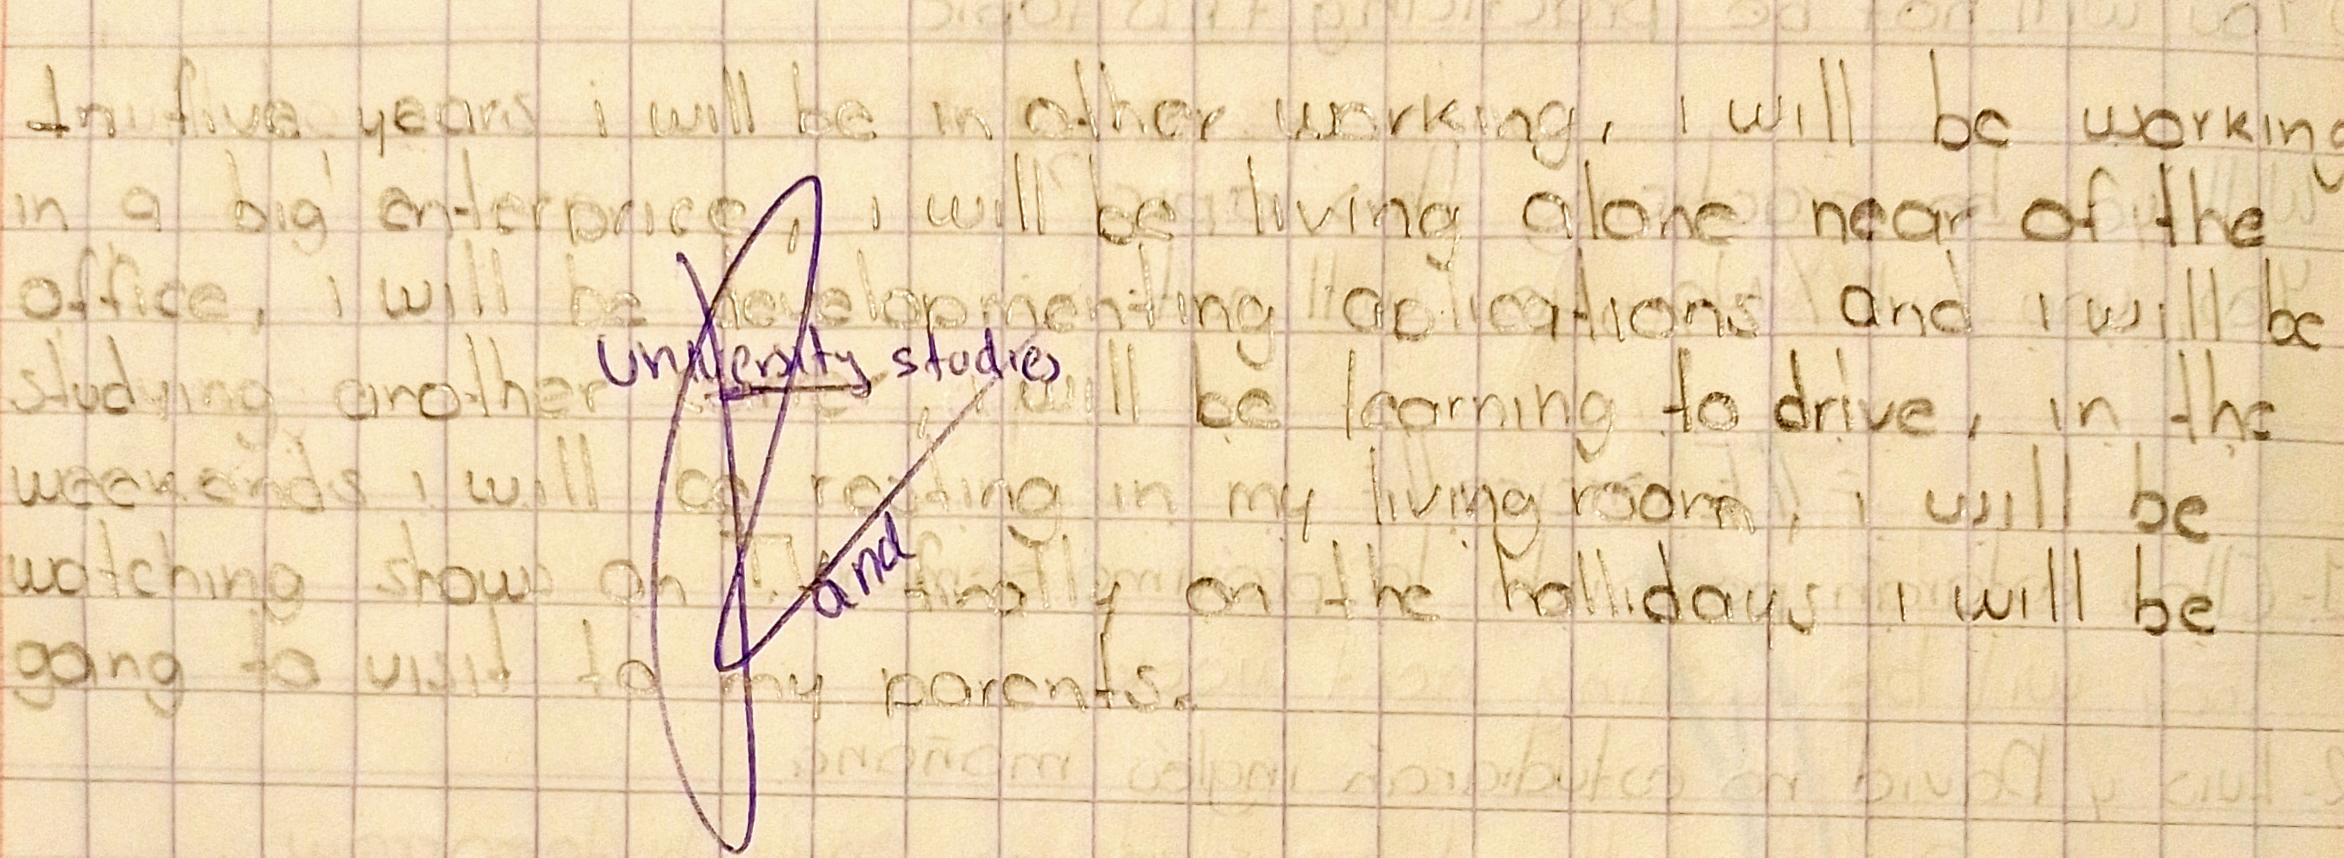 In five years i will be in other working, i will be working
in a big enterprice, i will be living alone near of the
office, i will be developmenting aplications and i will be
university studies
studying another i will be learning to drive, in the
weekends i will be resting in my living room, i will be
watching shows on TV finally on the hollidays i will be
and
going to visit to my parents.